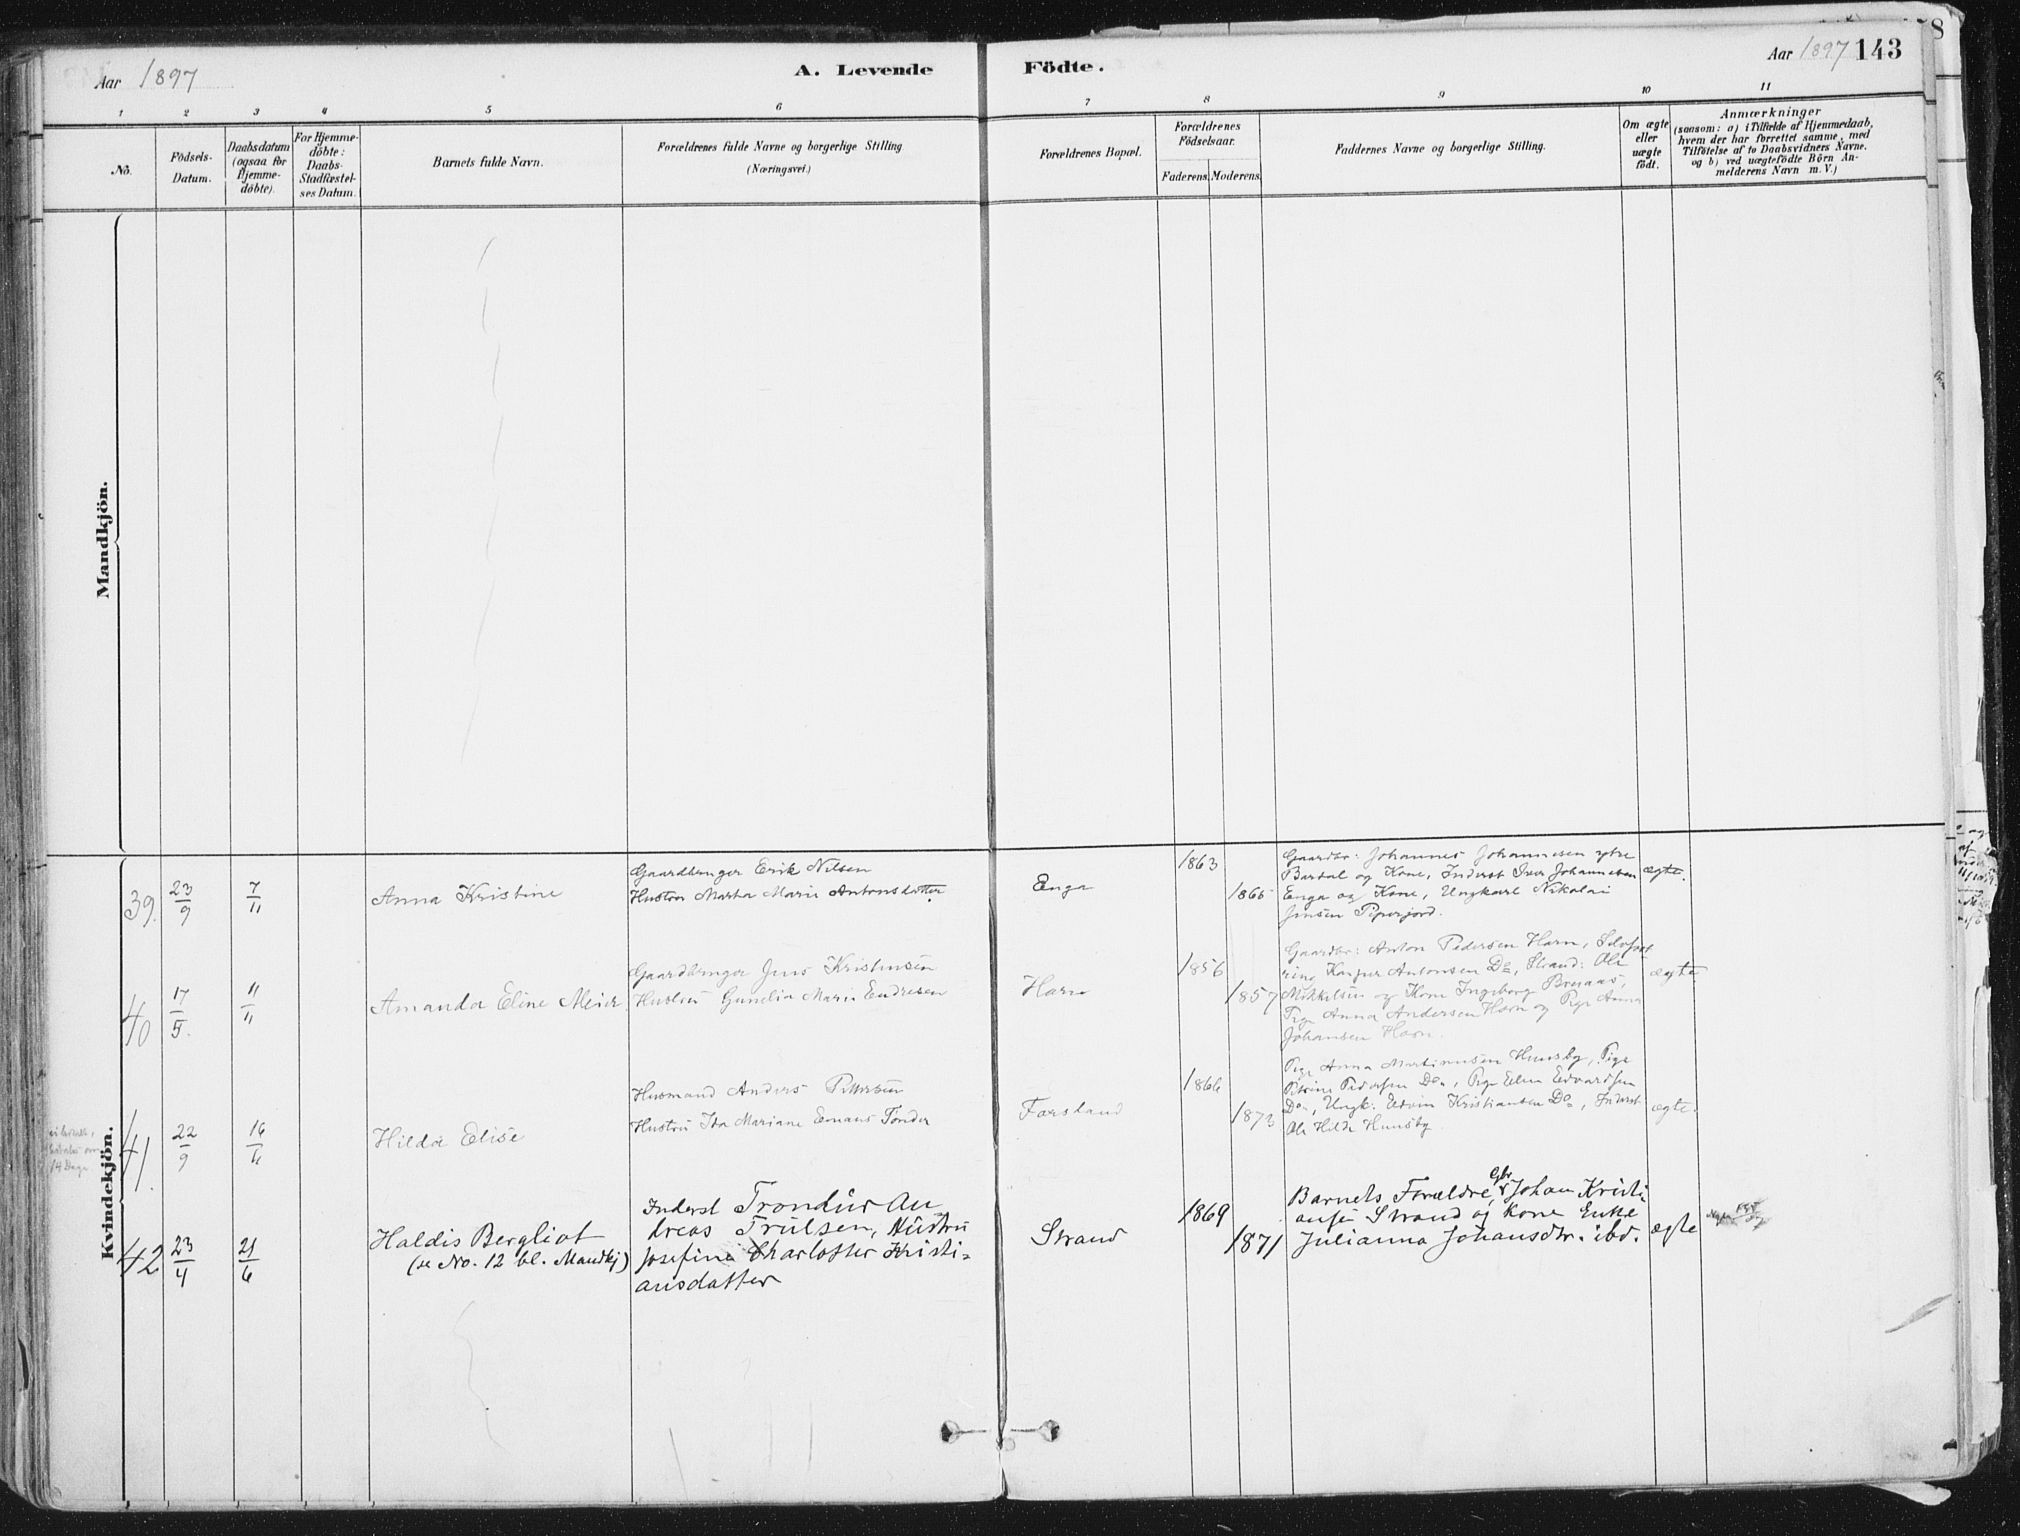 Aar 1897
A. Levende Födte.
Aar 1897 143
1 2 3 4 5 6 7 8 9 10 11
No.
Födsels-
Datum.
Daabsdatum
(ogsaa for
Hjemme-
döbte).
For Hjemme-
döbte:
Daabs-
Stadfæstel-
ses Datum.
Barnets fulde Navn.
Forældrenes fulde Navne og borgerlige Stilling
(Næringsvei.)
Forældrenes Bopæl.
Forældrenes
Födselsaar.
Faderens. Moderens.
Faddernes Navne og borgerlige Stilling.
Om ægte
eller
uægte
födt.
Anmærkninger
(saasom: a) i Tilfælde af Hjemmedaab,
hvem der har forrettet samme, med
Tilföielse af to Daabsvidners Navne.
og b) ved uægtefödte Börn An-
melderens Navn m. V.)
Mandkjön.
Kvindekjön.
39. 23/9 7/11
Anna Kristine
Gaardbruger Erik Nilsen
Hustru Marta Marie Antonsdatter
Enga
1863
1865
Gaardbr: Johannes Johannesen ytre
Bardal og Kone, Inderst Iver Johannesen
Enga og Kone, Ungkarl Nikolai
Jensen Piperjord.
ægte.
40 17/5. 11/11
Amanda Eline Meier
Gaardbruger Jens Kristensen
Hustru Gunelia Marie Endresen
Havn
1856
1857
Gaardbr: Anton Pedersen Havn,
Kasper Antonsen Do, Strand: Ole
Mikkelsen og Kone Ingeborg
Pige Anna Andersen Havn og Pige Anna
Johansen Havn.
ægte
41. 22/9 16/11
14 Dage
Hilda Elise
Husmand Anders Pettersen
Hustru Ida Mariane Emans Tönder
Forsland
1866
1873
Pige Anna Martinusen Hunsby, Pige
Petrine Pedersen Do, Pige Elen Edvardsen
Do, Ungk: Edvin Kristiansen Do, Inderst
Ole Hilde Hunsby.
ægte.
42 23/4 21/6
Haldis Bergliot
(se No. 12 bl. Mandkj)
Inderst Trondur An
dreas Trulsen, Hustru
Josefine Charlotter Kristi-
ansdatter
Strand
1869
1871
Barnets Forældre, Gbr Johan Kristi
ansen Strand og Kone Enke
Julianna Johansdtr. ibd.
ægte